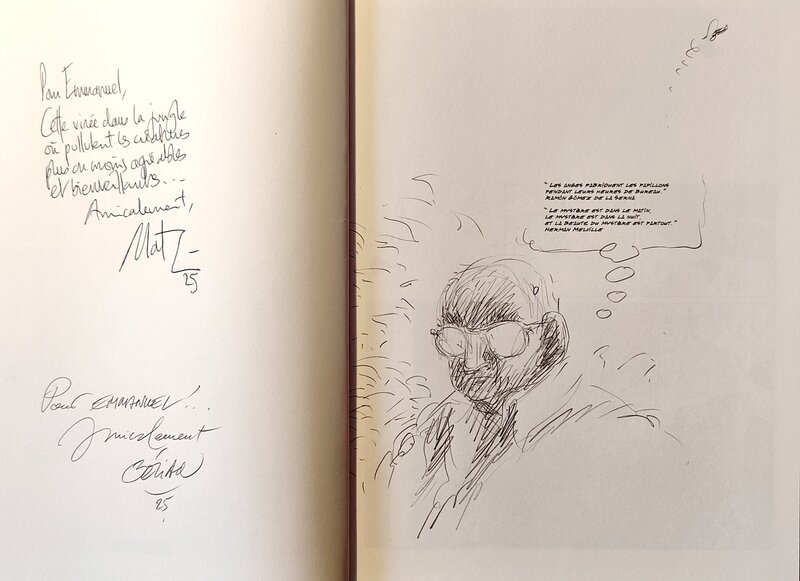 Pour Emmanuel,
Cette virée dans la jungle
où pullulent les créatures
plus ou moins agréables
et bienveillantes...
Amicalement,
Matz
25
Pour EMMANUEL...
Amicalement
25
"LES ANGES FABRIQUENT LES PAPILLONS
PENDANT LEURS HEURES DE BUREAU."
RAMÓN GÓMEZ DE LA SERNA
"LE MYSTÈRE EST DANS LE MATIN,
LE MYSTÈRE EST DANS LA NUIT,
ET LA BEAUTÉ DU MYSTÈRE EST PARTOUT."
HERMAN MELVILLE